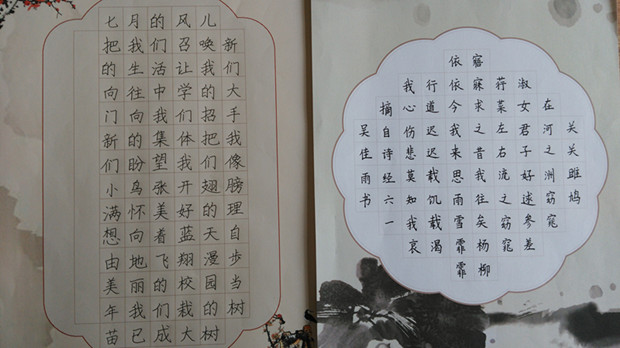 七月的风儿
把我们召唤新
的生活让我们
向往中学的大
门向我们招手
新的集体把我
们盼望我们像
小鸟张开翅膀
满怀美好的理
想向着蓝天自
由地飞翔漫步
美丽的校园当
年我们栽的树
苗已成大树
关关雎鸠
在河之洲窈窕
淑女君子好逑参差
荇菜左右流之窈窕
寤寐求之昔我往矣杨柳
依依今我来思雨雪霏霏
行道迟迟载饥载渴
我心伤悲莫知我哀
摘自诗经六一
吴佳雨书